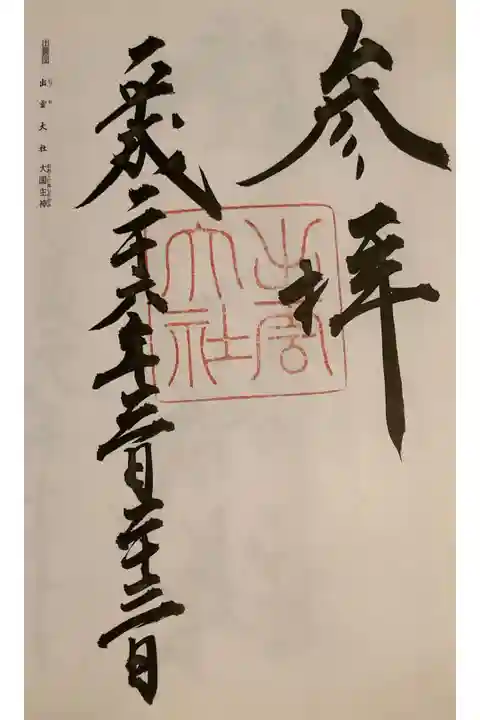 参拝
出雲
大社
平成二十六年三月二十三日
出雲国
出雲大社 大国主神